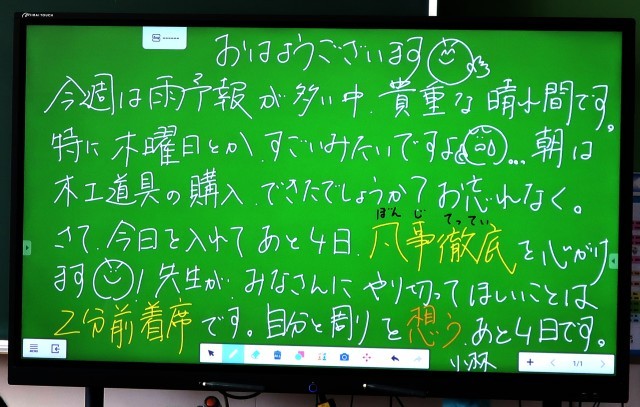 おはようございます
今週は雨予報が多い中、貴重な晴れ間です。
特に木曜日とか、すごいみたいですよ…朝は
木工道具の購入、できたでしょうか?お忘れなく。
ぼん じ てってい
さて、今日を入れてあと4日、凡事徹底を心がけ
ます!先生が、みなさんにやり切ってほしいことは
2分前着席です。自分と周りを想う。あと4日です。
小林
1/1